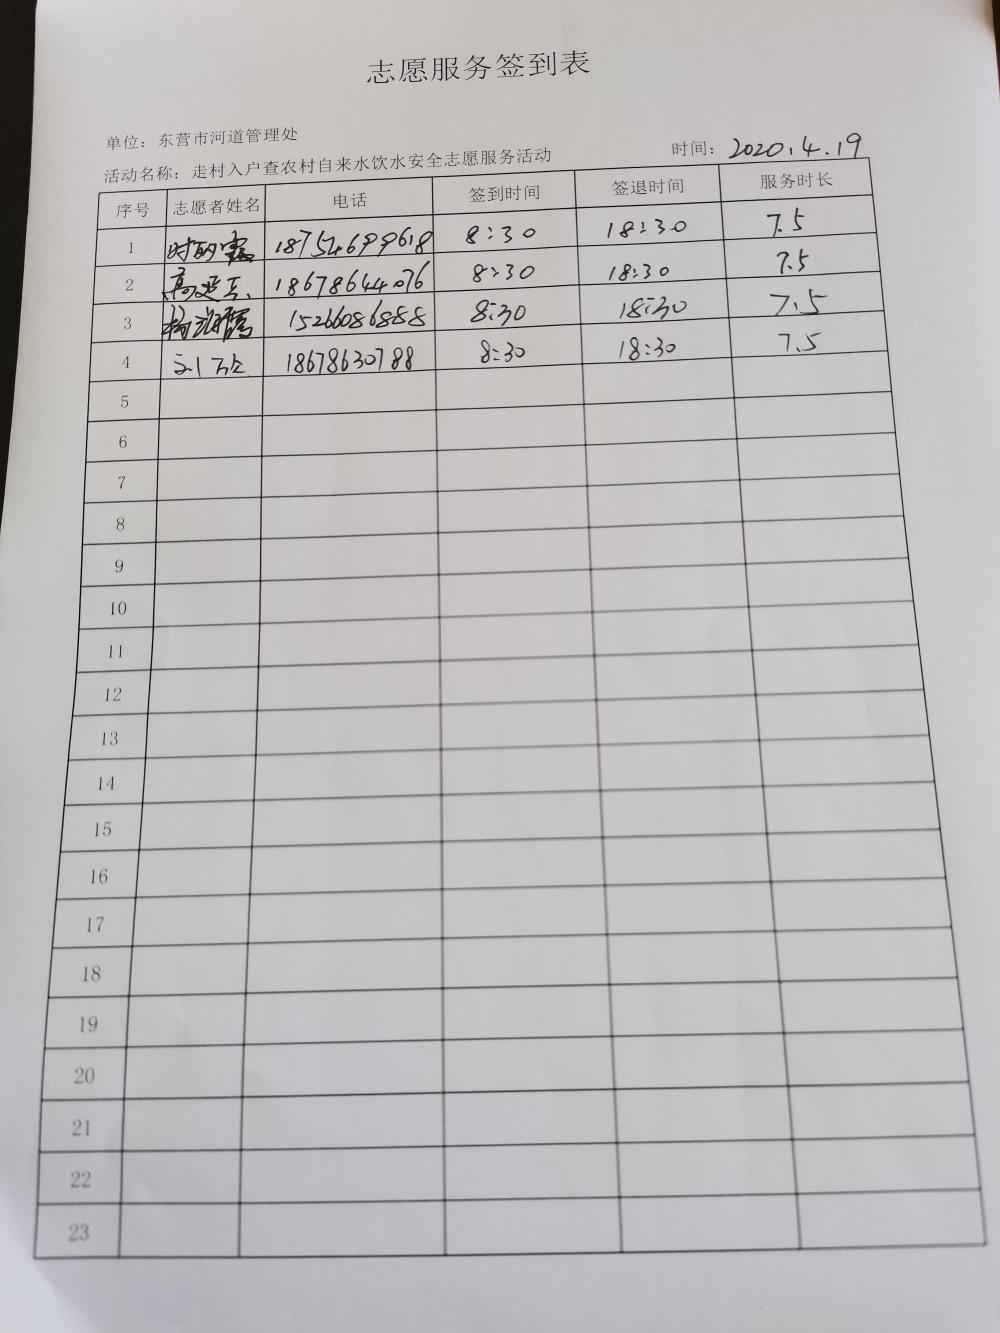 志愿服务签到表
单位：东营市河道管理处
时间：2020.4.19
活动名称：走村入户查农村自来水饮水安全志愿服务活动
序号 志愿者姓名 电话 签到时间 签退时间 服务时长
1 18754699618 8:30 18:30 7.5
2 18678644076 8:30 18:30 7.5
3 15266086888 8:30 18:30 7.5
4 18678630788 8:30 18:30 7.5
5
6
7
8
9
10
11
12
13
14
15
16
17
18
19
20
21
22
23